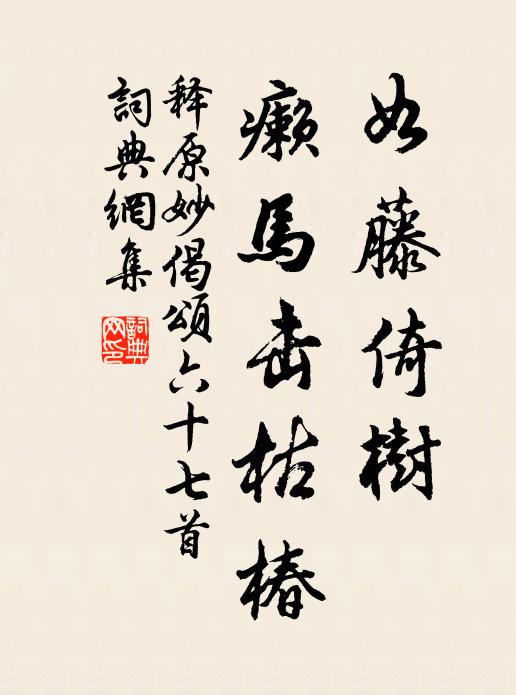 如藤倚樹
癩馬击枯椿
释原妙偈頌六十七首
詞典網集
詞典網印